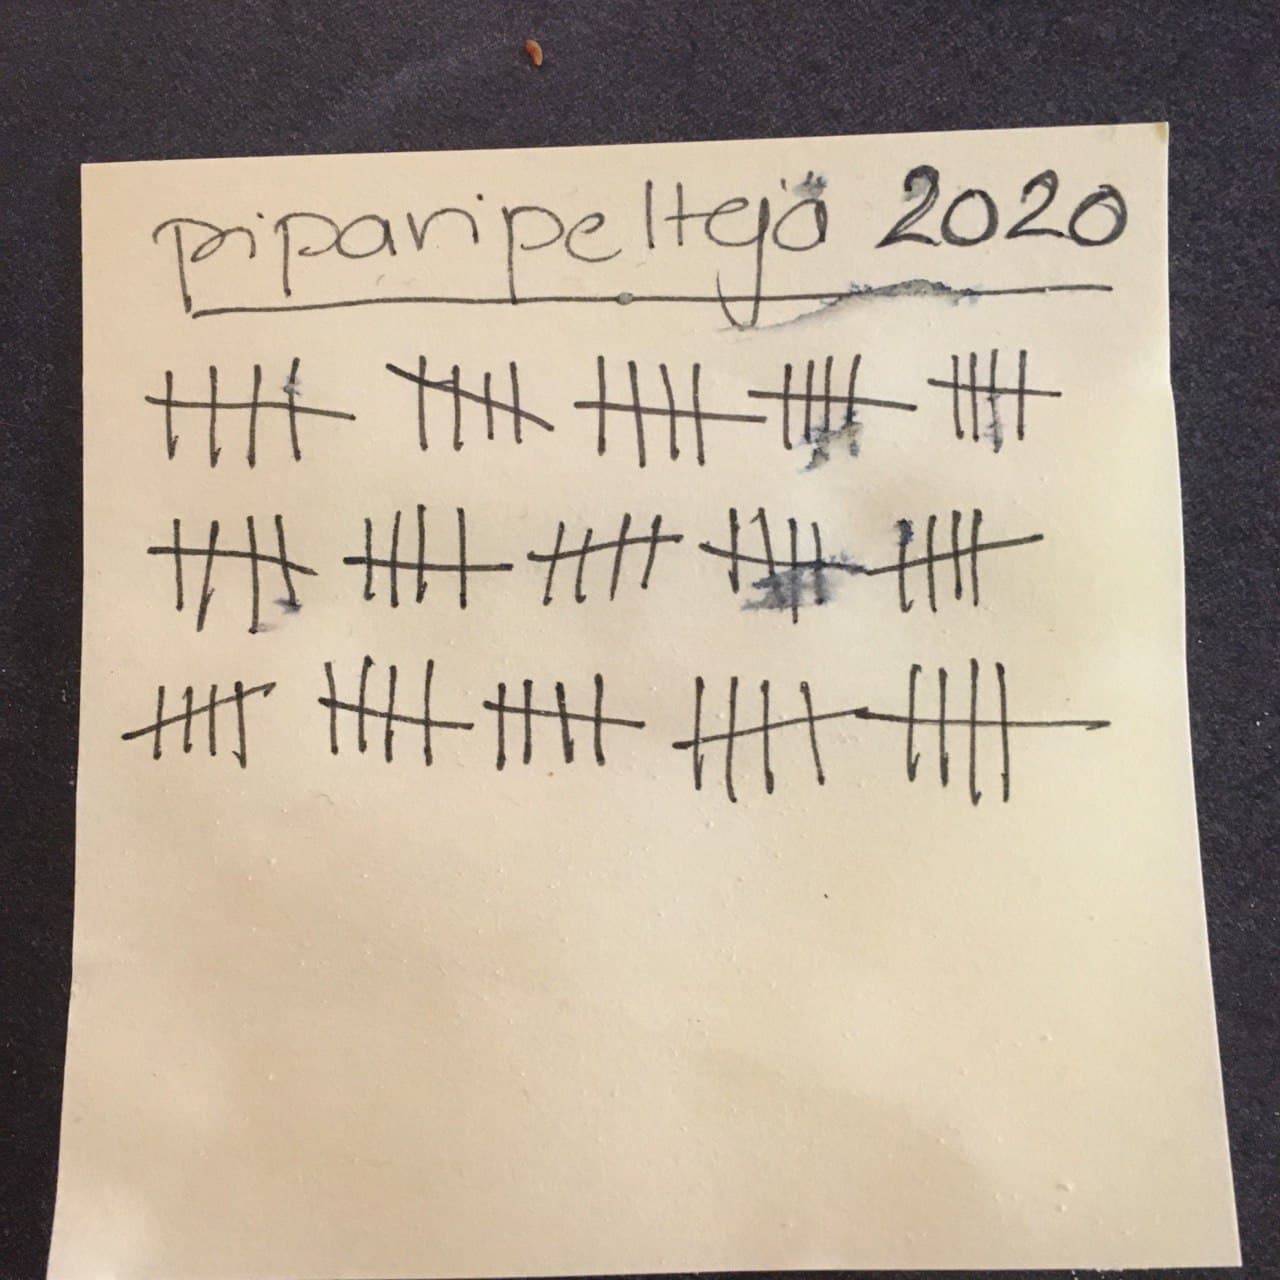 piparipeltejä 2020